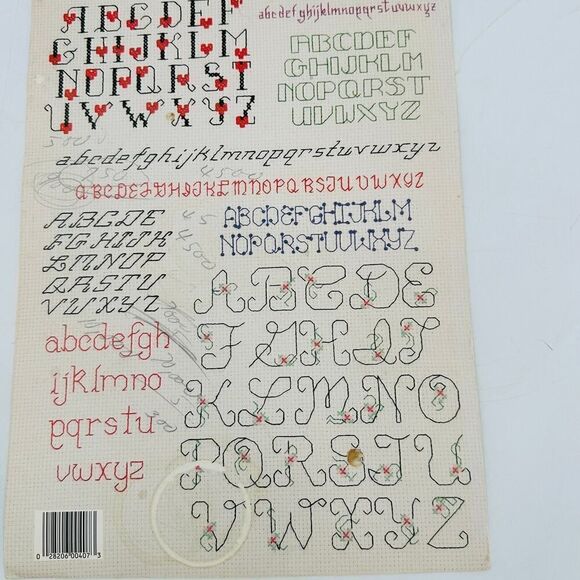 ABCDEF
GHIJKLM
NOPQRST
UVWXYZ
abcdefghijklmnopqrstuvwxyz
ABCDEF
GHIJKLM
NOPQRST
UVWXYZ
abcdefghijklmnopqrstuvwxyz
ABCDEFGHIJKLMNOPQRSTUVWXYZ
ABCDE
FGHIJK
LMNOP
QRSTU
VWXYZ
ABCDEFGHIJKLM
NOPQRSTUVWXYZ
abcdefgh
ijklmno
pqrstu
vwxyz
ABCDE
FGHIJ
KLMNO
PQRSTU
VWXYZ
0 28206 00407 3